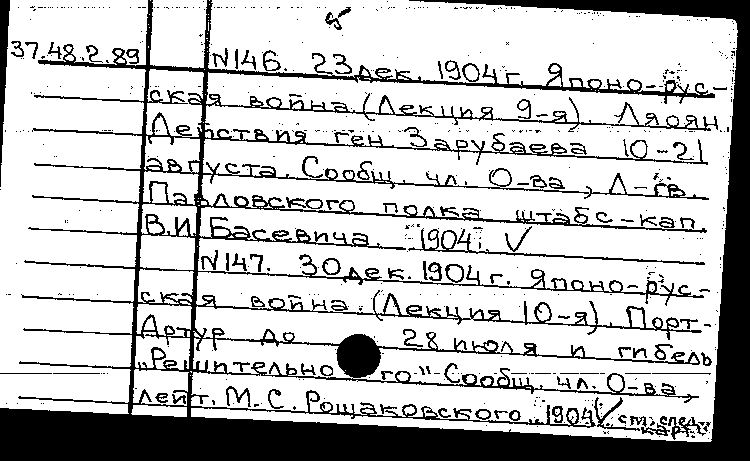 5
37.48.2.89 N146. 23 дек. 1904 г. Японо-рус-
ская война. (Лекция 9-я). Ляоян.
Действия ген. Зарубаева 10-21
августа. Сообщ. чл. О-ва, Л-гв.
Павловского полка штабс-кап.
В.И. Басевича. 1904. ✓
N147. 30 дек. 1904 г. Японо-рус-
ская война. (Лекция 10-я). Порт-
Артур до 28 июля и гибель
„Решительного" Сообщ. чл. О-ва,
лейт. М.С. Рощаковского. 1904 ✓ см. след.
карт.